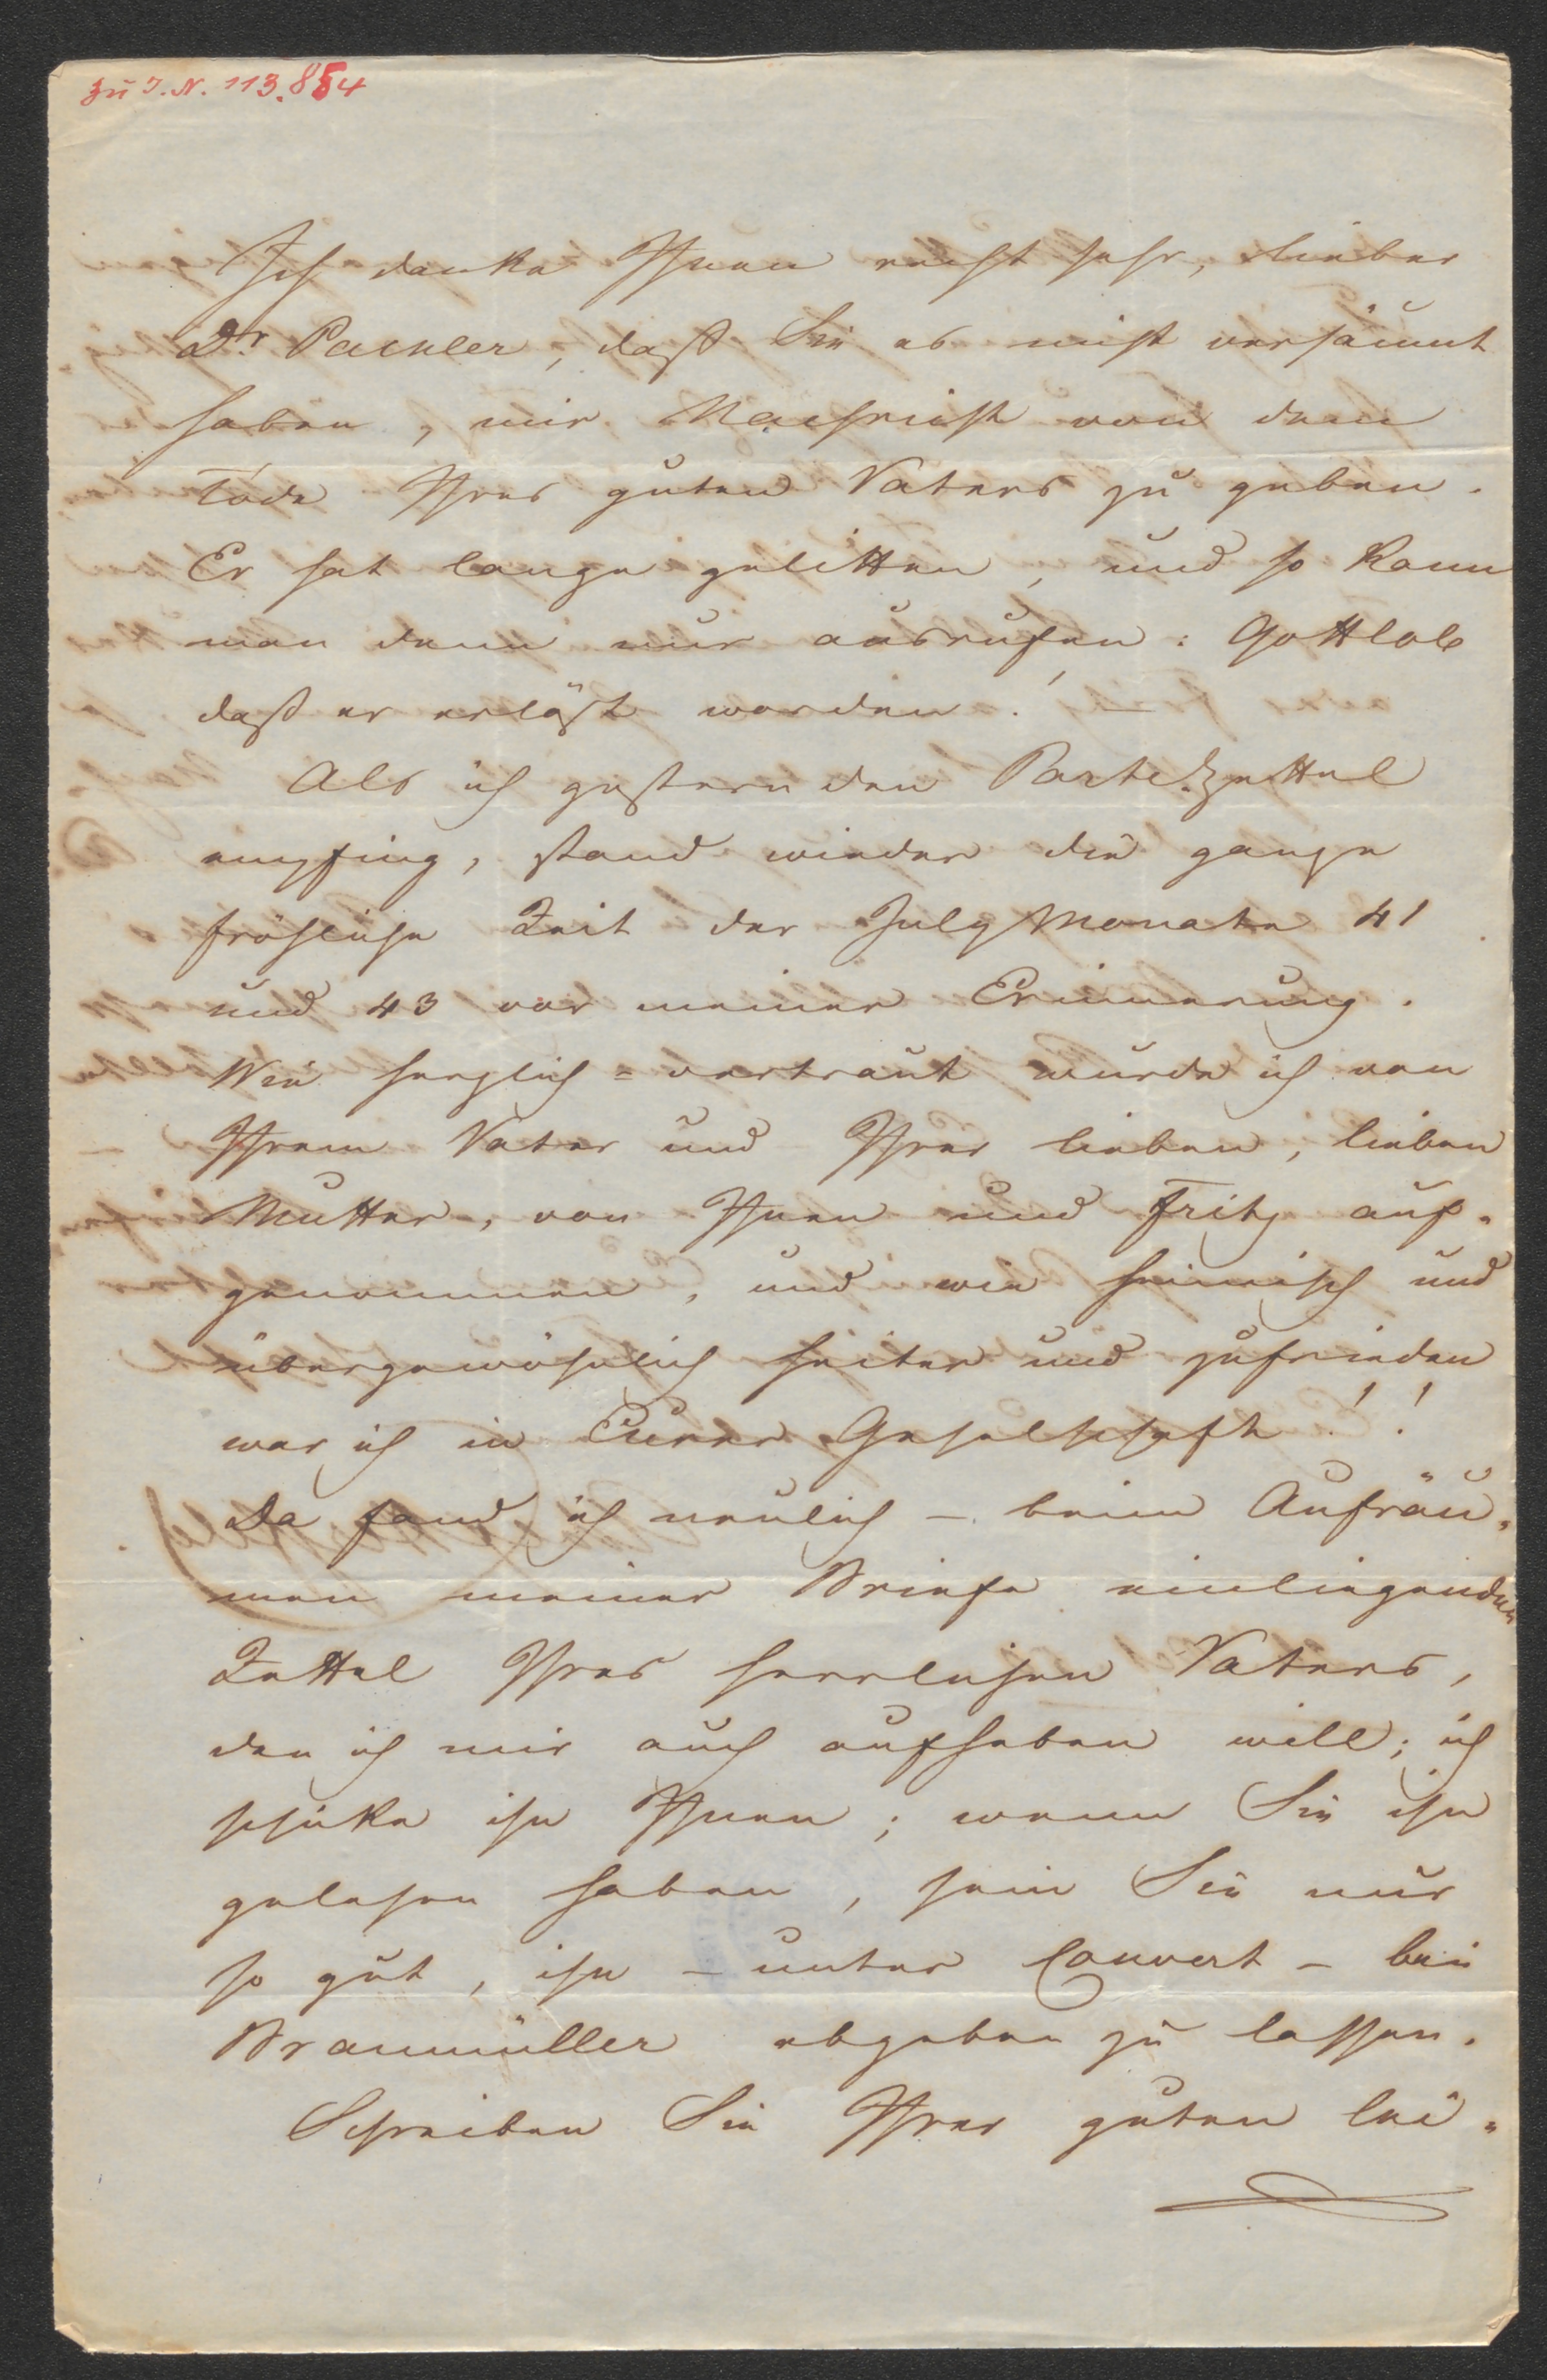 zu I.N. 113.854
Ich danke Ihnen recht sehr, lieber
Dr Pachler, daß Sie es nicht versäumt
haben, mir Nachricht von dem
Tode Ihres guten Vaters zu geben.
Er hat lange gelitten, und so kann
man denn nur ausrufen: Gottlob
daß er erlöst worden! –
Als ich gestern den Partezettel
empfing, stand wieder die ganze
fröhliche Zeit der July Monate 41
und 43 vor meiner Erinnerung.
Wie herzlich=vertraut wurde ich von
Ihrem Vater und Ihrer lieben, lieben
Mutter, von Ihnen und Fritz auf=
genommen, und wie heimisch und
übergewöhnlich heiter und zufrieden
war ich in Eurer Gesellschaft!!
Da fand ich neulich – beim Aufräu=
men meiner Briefe einliegenden
Zettel Ihres herrlichen Vaters,
den ich mir auch aufheben will; ich
schicke ihn Ihnen; wenn Sie ihn
gelesen haben, sein Sie nur
so gut, ihn – unter Couvert – bei
Braumüller abgeben zu lassen.
Schreiben Sie Ihrer guten lei=